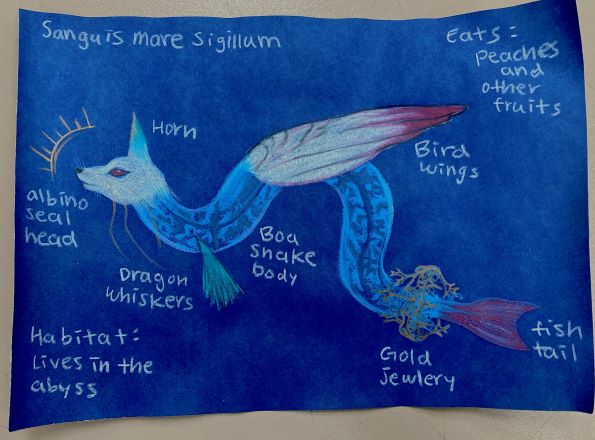 Sanguis mare Sigillum
Eats:
Peaches
and
other
fruits
Horn
Bird
wings
albino
seal
head
Boa
snake
body
Dragon
whiskers
Habitat:
Lives in the
abyss
Gold
Jewlery
fish
tail